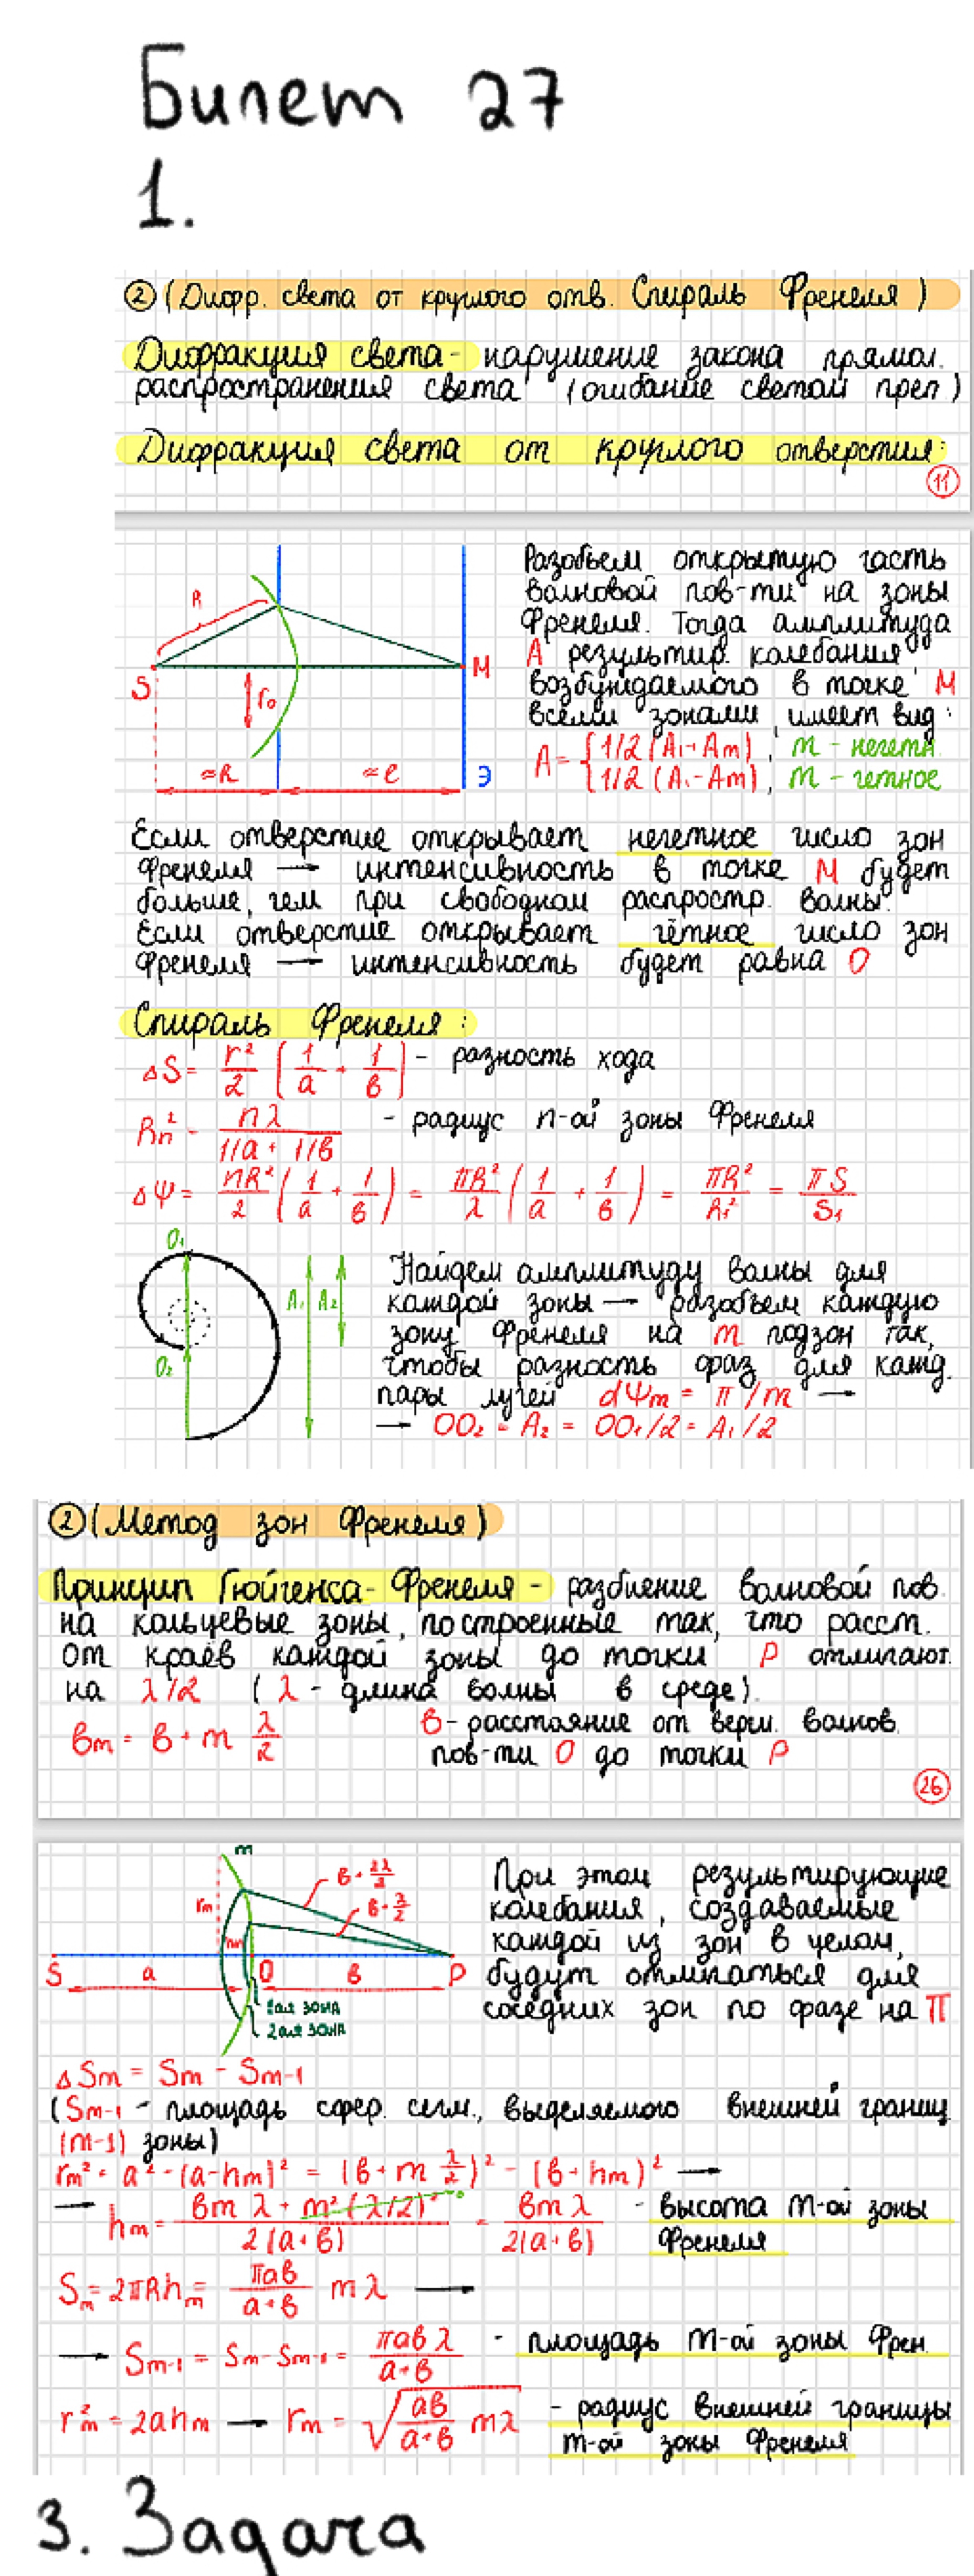 Билет 27
1.
② (Дифр. света от круглого отв. Спираль Френеля)
Дифракция света - нарушение закона прямол.
распространения света (огибание светом преп.)
Дифракция света от круглого отверстия:
11
Разобьем открытую часть
волновой пов-ти на зоны
Френеля. Тогда амплитуда
A результир. колебания,
возбуждаемого в точке M
всеми зонами, имеет вид:
A = { 1/2 (A₁+Am), m - нечетн.
1/2 (A₁-Am), m - четное
R
S
M
r₀
≈R
≈e
Э
Если отверстие открывает нечетное число зон
Френеля → интенсивность в точке M будет
больше, чем при свободном распростр. волны.
Если отверстие открывает чётное число зон
Френеля → интенсивность будет равна 0
Спираль Френеля:
ΔS = r²/2 (1/a + 1/в) - разность хода
Rn² = nλ/(1/a + 1/в) - радиус n-ой зоны Френеля
ΔΨ = ПR²/2 (1/a + 1/в) = πR²/λ (1/a + 1/в) = πR²/R₁² = πS/S₁
O₁
O₂
A₁ A₂
Найдем амплитуду волны для
каждой зоны → разобьем каждую
зону Френеля на m подзон так,
чтобы разность фаз для кажд.
пары лучей dΨm = π/m →
→ OO₂ = A₂ = OO₁/2 = A₁/2
② (Метод зон Френеля)
Принцип Гюйгенса-Френеля - разбиение волновой пов.
на кольцевые зоны, построенные так, что расст.
от краёв каждой зоны до точки P отличают.
на λ/2 (λ - длина волны в среде).
вm = в + m λ/2
в - расстояние от верш. волнов.
пов-ти O до точки P
26
m
rm
hm
в + 2λ/2
в + λ/2
S
a
O
в
P
1ая зона
2ая зона
При этом результирующие
колебания, создаваемые
каждой из зон в целом,
будут отличаться для
соседних зон по фазе на π
ΔSm = Sm - Sm-1
(Sm-1 - площадь сфер. сегм., выделяемого внешней границ.
(m-1) зоны)
rm² = a² - (a-hm)² = (в + m λ/2)² - (в + hm)² →
→ hm = (вmλ + m²(λ/2)²)/(2(a+в)) = вmλ/(2(a+в)) - высота m-ой зоны
Френеля
Sm = 2πRhm = πaв/(a+в) mλ →
→ Sm-1 = Sm - Sm-1 = πaвλ/(a+в) - площадь m-ой зоны Френ.
r²m = 2ahm → rm = √(aв/(a+в) mλ) - радиус внешней границы
m-ой зоны Френеля
3. Задача